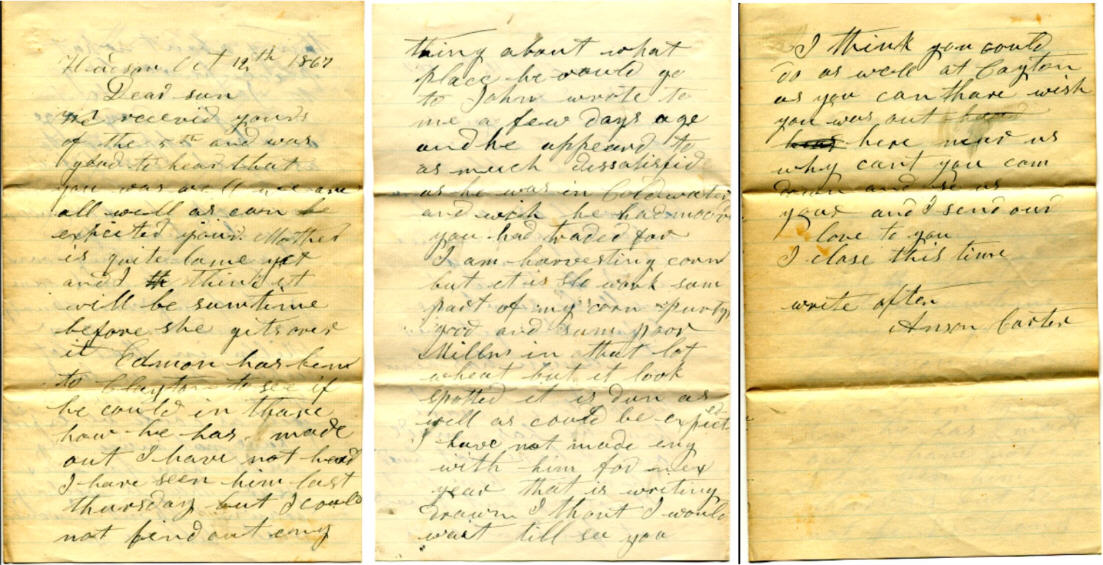 Hudson Oct 12th 1867
Dear son
received yours
of the 5th and was
glad to hear that
you was well we are
all well as can be
expicted your Mother
is quite lame yet
and I think it
will be sumtime
before she gits over
it Edmon has ben
to Clayton to see if
he could in thare
how he has made
out I have not heard
I have seen him last
thursday but I could
not find out eny
thing about what
place he would go
to John wrote to
me a few days ago
and he appeard to
as much dissatisfid
as he was in Coldwater
and wich he had
you had traded for
I am harvesting corn
but it is slo work sum
part of my corn is purty
good and sum poor
in that lot
wheat but it look
spotted it is dun as
well as could be expicted
I have not made eny
with him for nex
year that is writing
drawn I thout I would
wait till see you
I think you could
do as well at Cayton
as you can thare wish
you was out
here near us
why cant you com
down and se us
yours and I send our
love to you
I close this time
write often
Anson Carter